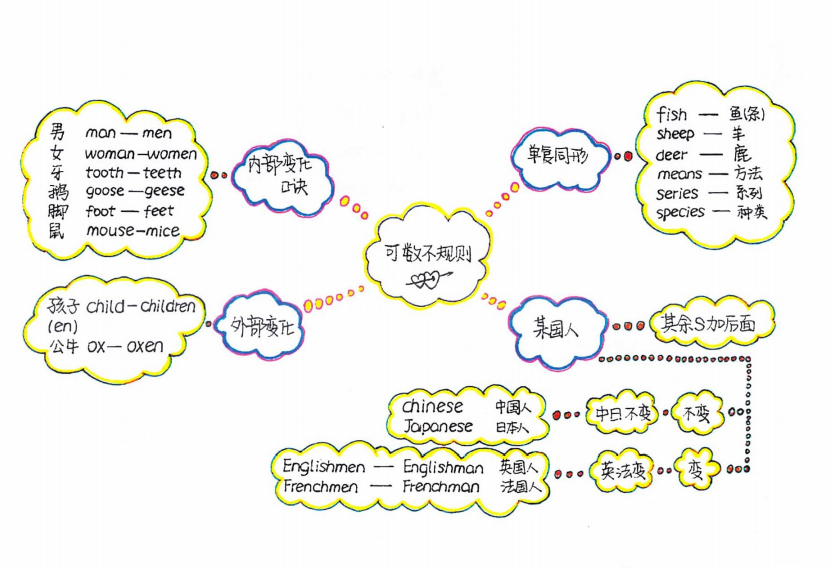 可数不规则
内部变化
口诀
男 man — men
女 woman — women
牙 tooth — teeth
鹅 goose — geese
脚 foot — feet
鼠 mouse — mice
外部变化
孩子 child — children
(en)
公牛 ox — oxen
单复同形
fish — 鱼(条)
sheep — 羊
deer — 鹿
means — 方法
series — 系列
species — 种类
某国人
其余S加后面
不变
中日不变
chinese 中国人
Japanese 日本人
变
英法变
Englishmen — Englishman 英国人
Frenchmen — Frenchman 法国人